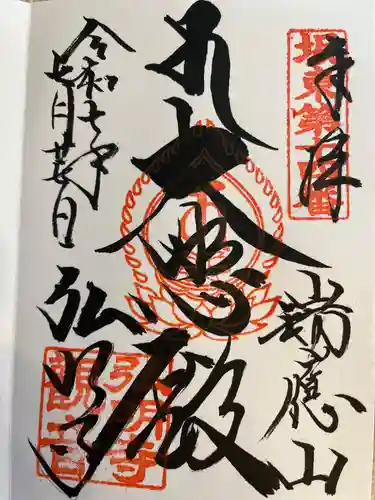 奉拝
坂東第十四番
瑞應山
大悲殿
弘明寺
弘明寺
観音
令和七年
七月廿日